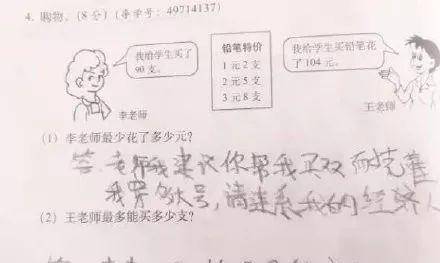 4. 购物。(8分)(李学号:49714137)
我给学生买了
90支。
李老师
铅笔特价
1元2支
2元5支
3元8支
我给学生买铅笔花
了104元。
王老师
(1)李老师最少花了多少元?
答:老师我建议你帮我买双耐克鞋
我穿 号,请连系我的经济人
(2)王老师最多能买多少支?